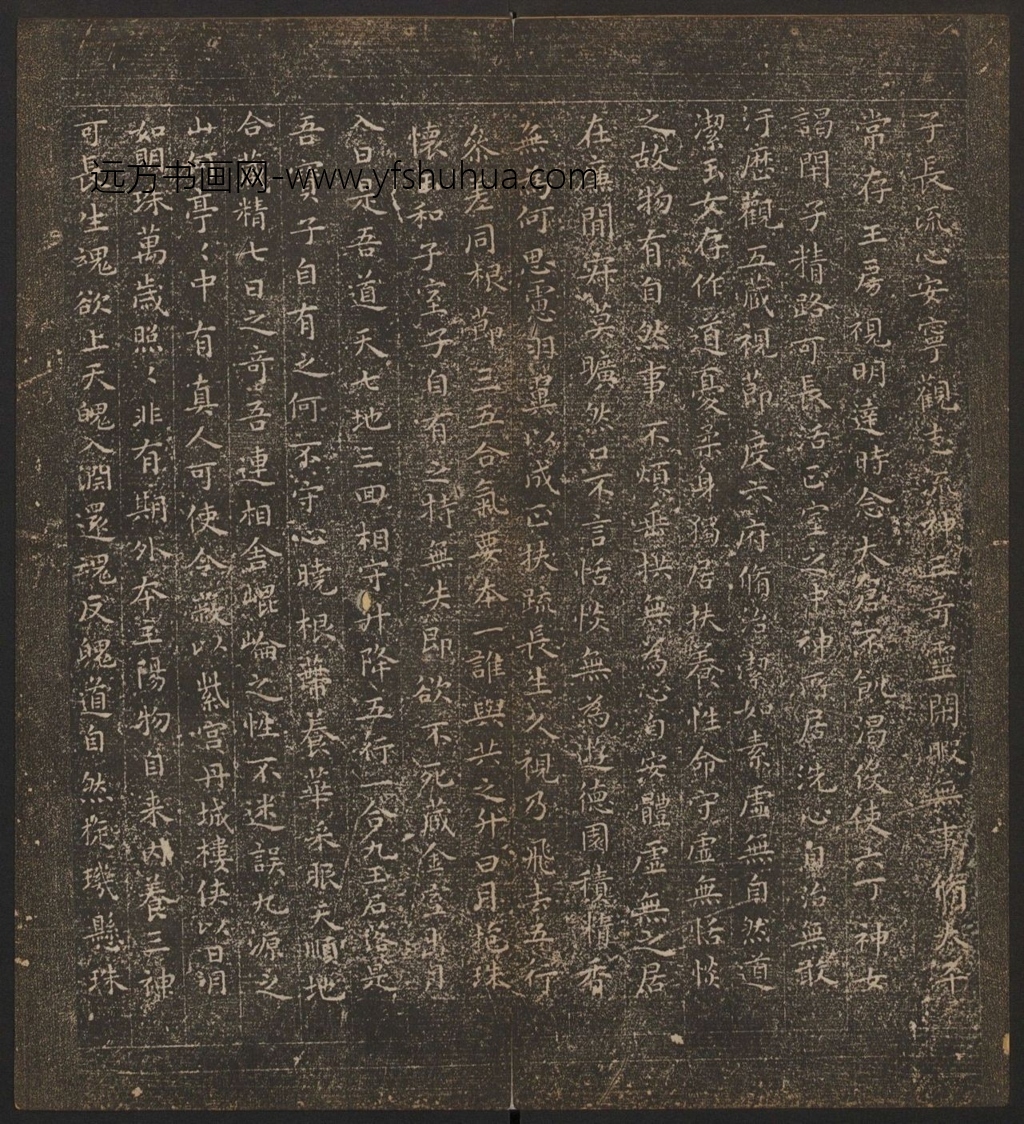 子長流心安寧觀志流神三奇靈閑暇無事脩太平
常存玉房視明達時念大倉不飢渴伇使六丁神女
謁閉子精路可長活正室之中神所居洗心自治無敢
汙歷觀五藏視節度六府脩治潔如素虛無自然道
潔玉女存作道憂柔身獨居扶養性命守虛無恬惔
之故物有自然事不煩垂拱無為心自安體虛無之居
在廉間寂莫曠然口不言恬惔無為遊德園積精香
無為何思慮羽翼以成正扶疏長生久視乃飛去五行
參差同根節三五合氣要本一誰與共之升日月抱珠
懷和子室子自有之持無失即欲不死藏金室出月
入日是吾道天七地三回相守升降五行一合九玉石落是
吾寶子自有之何不守心曉根蔕養華采服天順地
合藏精七日之奇吾連相舍崐崘之性不迷誤九源之
山何亭〻中有真人可使令蔽以紫宮丹城樓俠以日月
如明珠萬歲照〻非有期外本三陽物自来内養三神
可長生魂欲上天魄入淵還魂反魄道自然旋璣懸珠
远方书画网-www.yfshuhua.com